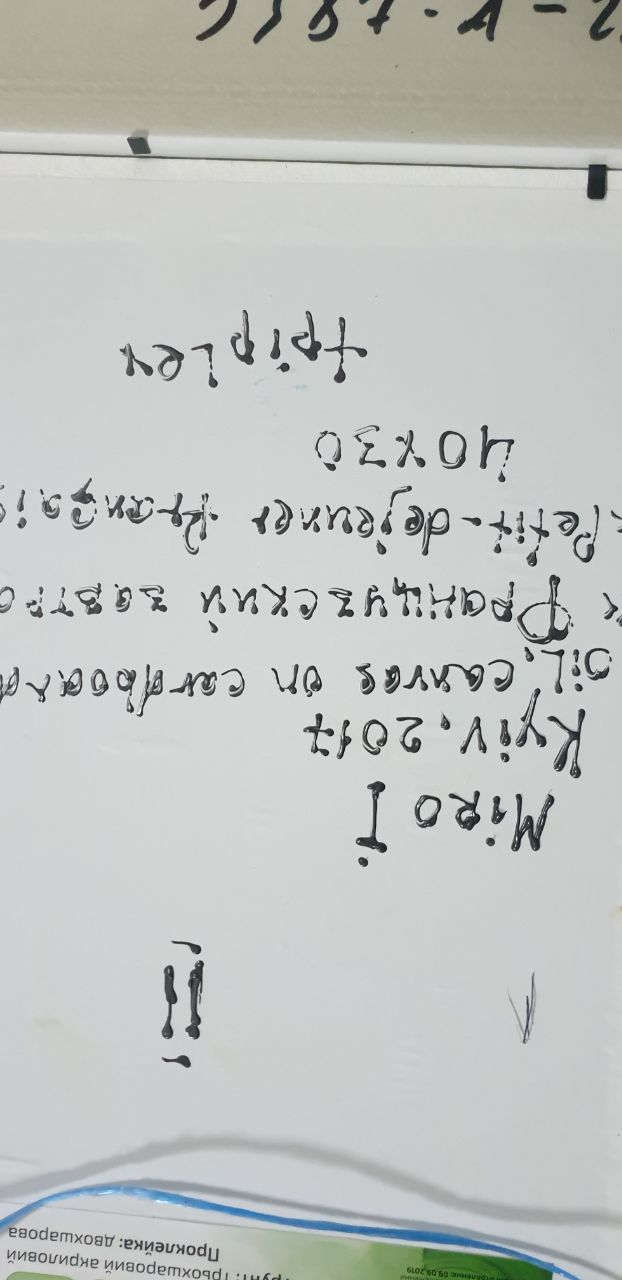 09.09.2019
Грунт: трьохшаровий акриловий
Проклейка: двохшарова
II
Miro I
Kyiv, 2017
oil, canvas on cardboard
« Французский завтра
«Petit-dejeuner Français
40x30
tpiplex